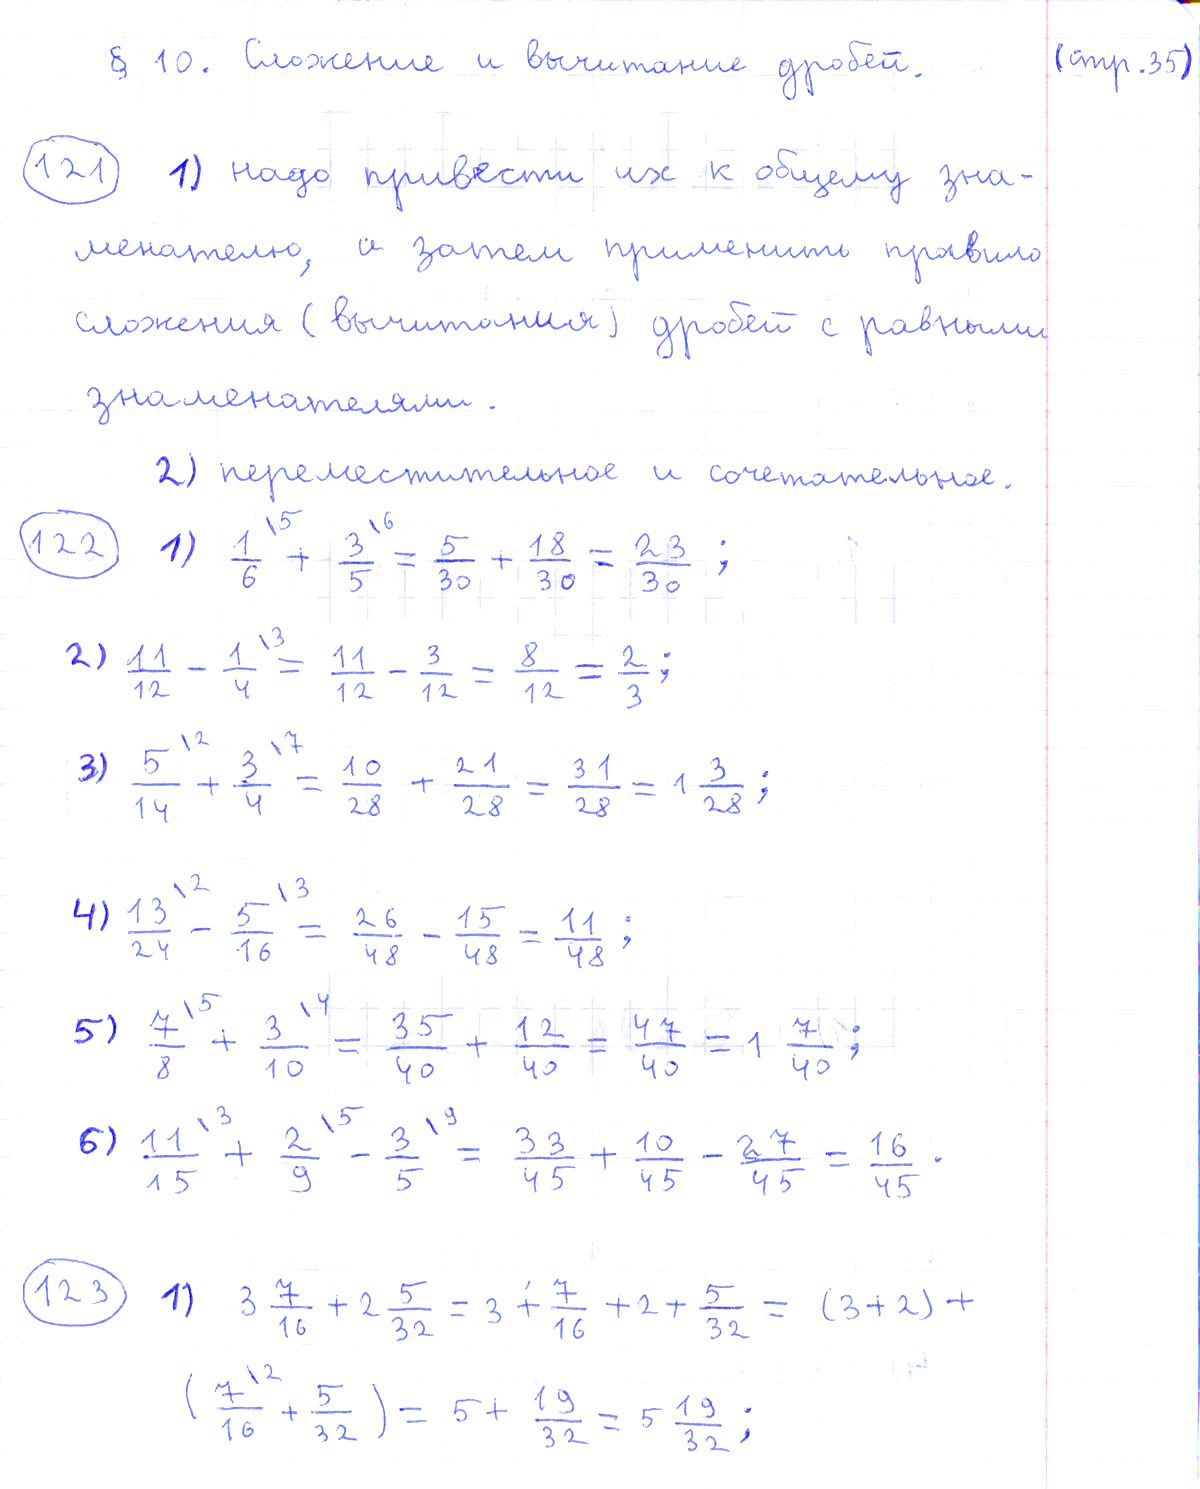 § 10. Сложение и вычитание дробей. (стр. 35)
121 1) надо привести их к общему зна-
менателю, а затем применить правило
сложения (вычитания) дробей с равными
знаменателями.
2) переместительное и сочетательное.
122 1) 1/6 \5 + 3/5 \6 = 5/30 + 18/30 = 23/30 ;
2) 11/12 - 1/4 \3 = 11/12 - 3/12 = 8/12 = 2/3 ;
3) 5/14 \2 + 3/4 \7 = 10/28 + 21/28 = 31/28 = 1 3/28 ;
4) 13/24 \2 - 5/16 \3 = 26/48 - 15/48 = 11/48 ;
5) 7/8 \5 + 3/10 \4 = 35/40 + 12/40 = 47/40 = 1 7/40 ;
6) 11/15 \3 + 2/9 \5 - 3/5 \9 = 33/45 + 10/45 - 27/45 = 16/45 .
123 1) 3 7/16 + 2 5/32 = 3 + 7/16 + 2 + 5/32 = (3+2) +
(7/16 \2 + 5/32) = 5 + 19/32 = 5 19/32 ;